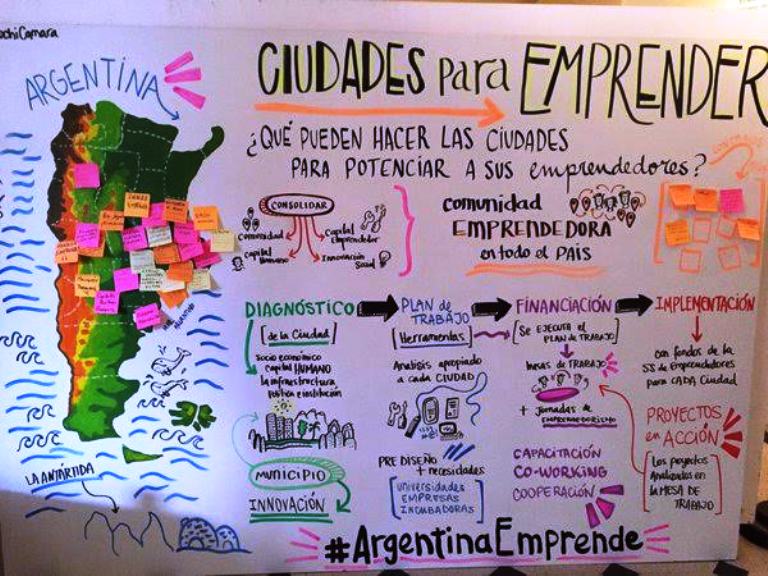 ochiCamara
ARGENTINA
CIUDADES para EMPRENDER
¿QUÉ PUEDEN HACER LAS CIUDADES
PARA POTENCIAR A SUS emprendedores?
CONSOLIDAR
Comunidad
Capital
Emprendedor
Capital
Humano
Innovación
Social
comunidad
EMPRENDEDORA
en todo el PAÍS
DIAGNÓSTICO
[de la Ciudad]
Socio económico
capital HUMANO
la infraestructura
Política e institución
MUNICIPIO
INNOVACIÓN
PLAN de
TRABAJO
[Herramientas]
Analisis apropiado
a cada CIUDAD
PRE DISEÑO
+ necesidades
UNIVERSIDADES
EMPRESAS
INCUBADORAS
FINANCIACIÓN
Se EJECUTA el
PLAN DE TRABAJO
Mesas de TRABAJO
+ Jornadas de
EMPRENDEDORISMO
CAPACITACIÓN
CO-WORKING
COOPERACIÓN
IMPLEMENTACIÓN
con fondos de la
SS de Emprendedores
para CADA Ciudad
PROYECTOS
en ACCIÓN
Los proyectos
Analizados en
la MESA DE
TRABAJO
LA ANTÁRTIDA
#ArgentinaEmprende